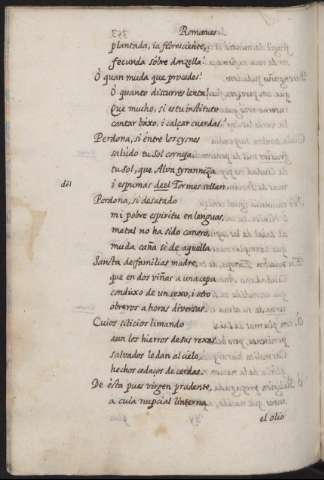 Romances
plantada, ia floresciente,
fecunda sobre donzella!
O quan muda que procedes!
O quanto discurres lenta!
Que mucho, si es tu instituto
cantar baxo, i calçar cuerdas?
Perdona, si entre los cysnes
saludo tu Sol corneja,
tu Sol, que Alva tyranneça
i espumas del Tormes sellan.
del
Perdona, si desatado
mi pobre espiritu en lenguas,
metal no ha sido canoro,
muda caña si de aquella
Sancta de familias madre,
que en dos viñas a una cepa
conduxo de un sexo, i otro
obreros a horas diversas.
Cuios silicios limando
aun los hierros de tus rexas
salvados le dan al cielo
hechos cedaços de cerdas.
De esta pues virgen prudente,
a cuia nupcial linterna
el olio